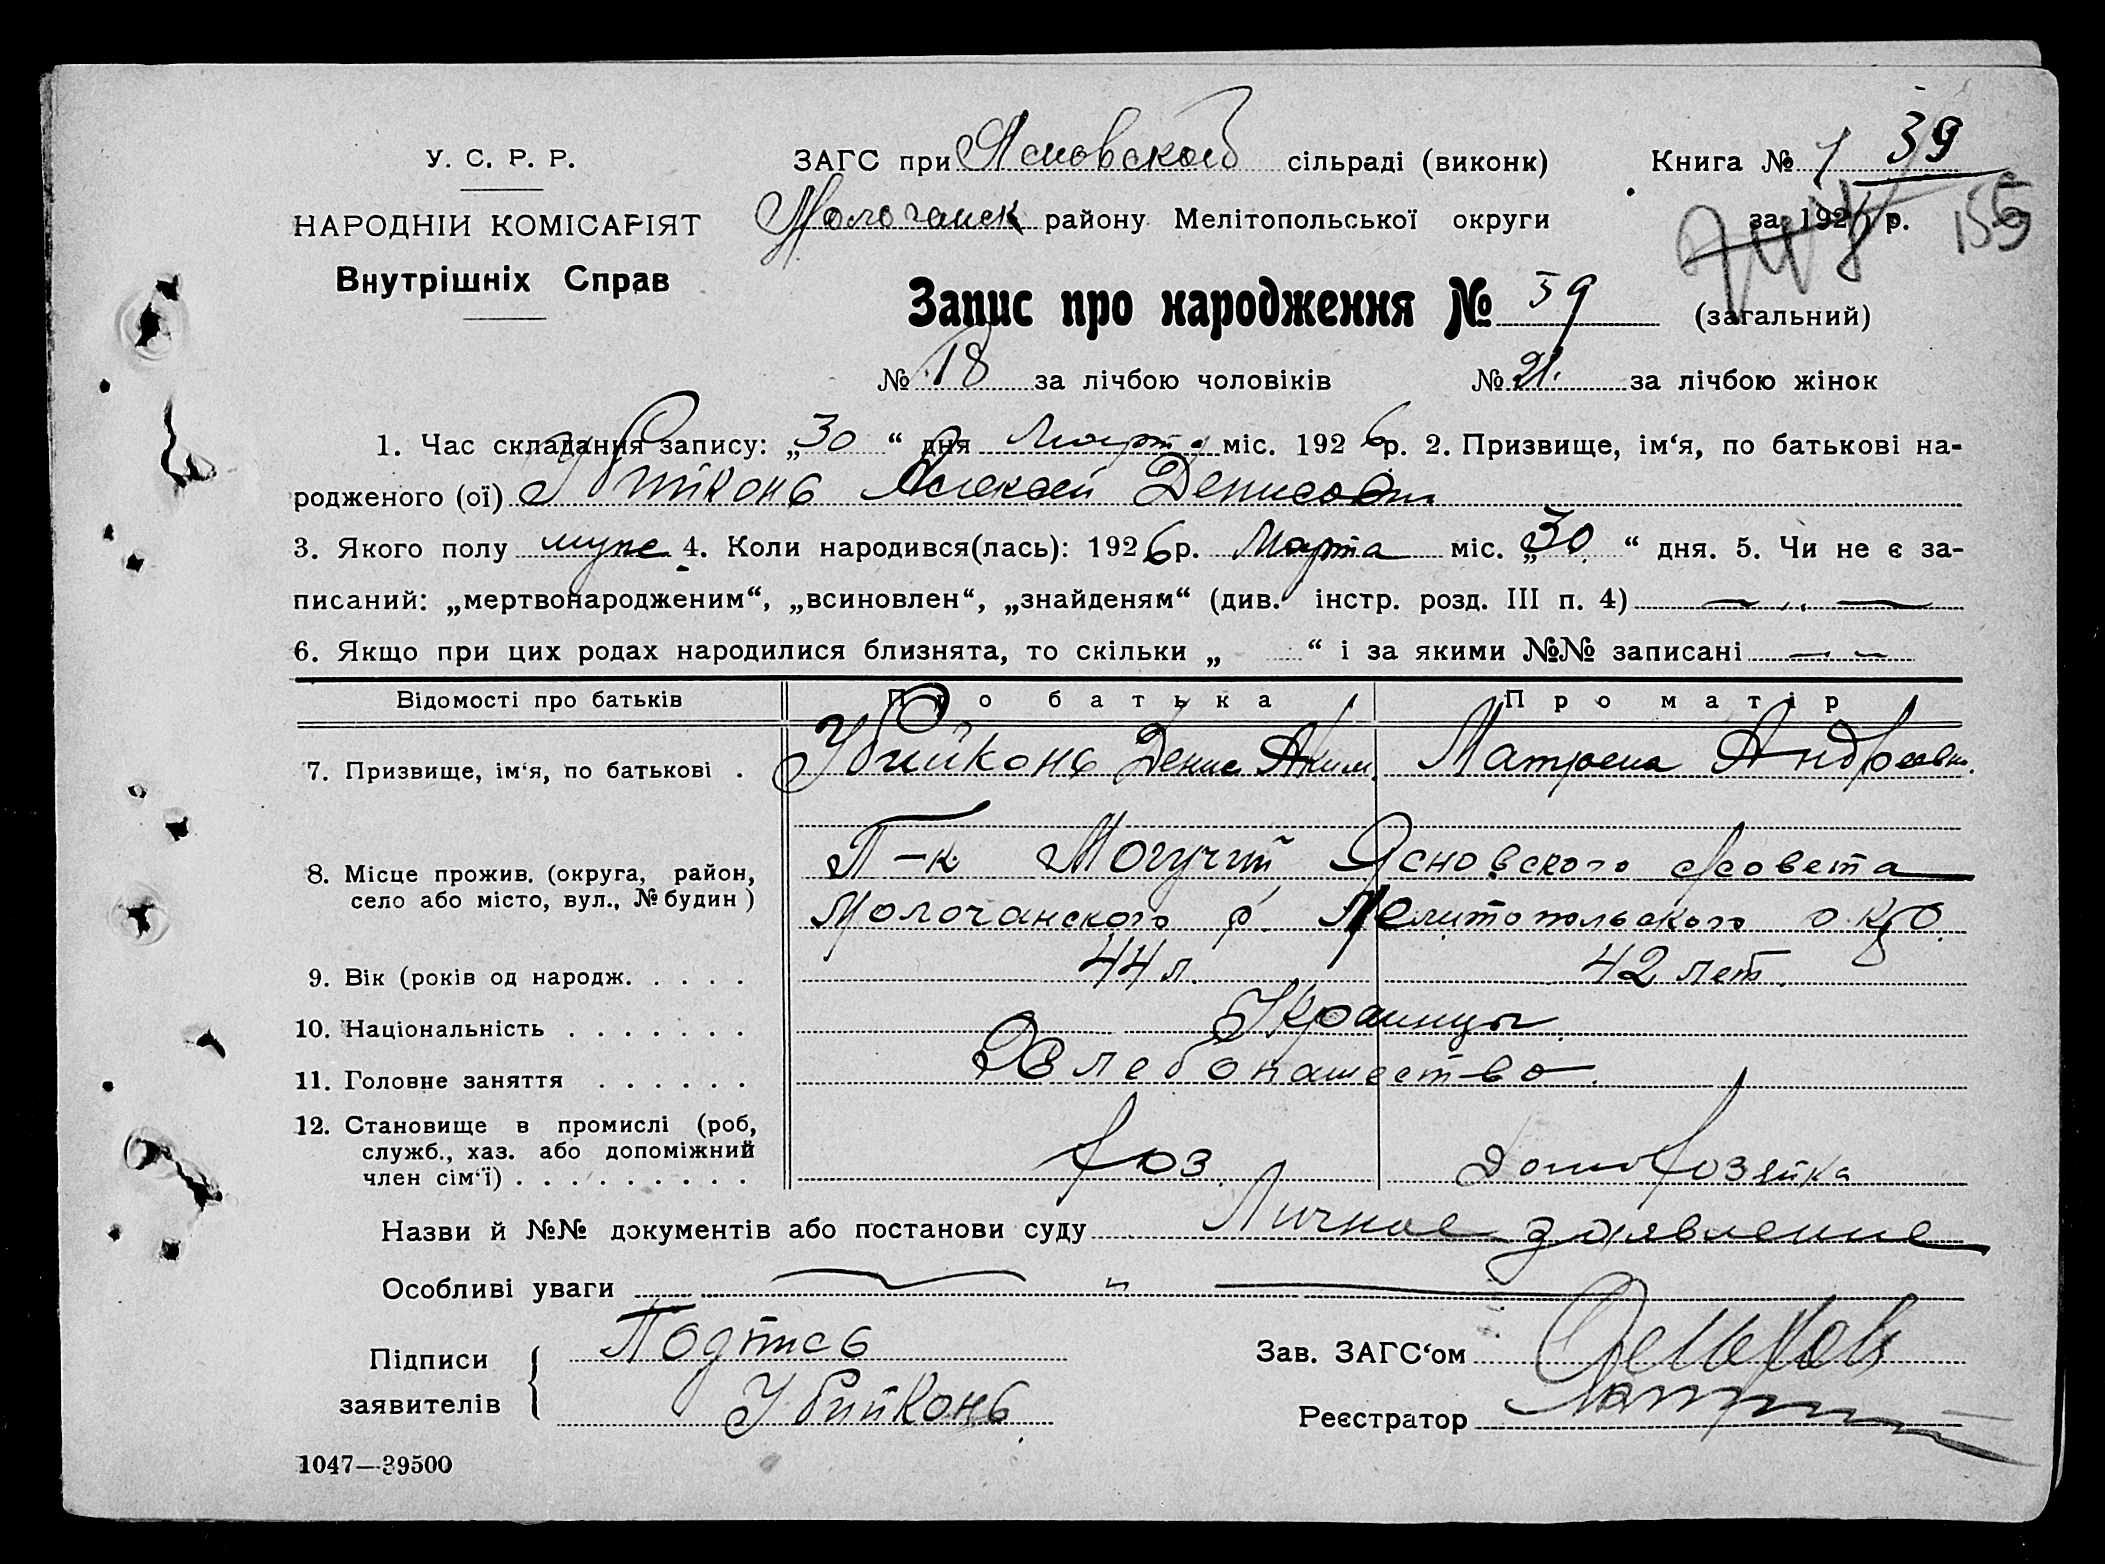 У. С. Р. Р.
НАРОДНІЙ КОМІСАРІЯТ
Внутрішніх Справ
ЗАГС при Ясновской сільраді (виконк)
Молочанск району Мелітопольської округи
Книга № 1 39
за 1926 р. 155
Запис про народження № 39 (загальний)
№ 18 за лічбою чоловіків № 21. за лічбою жінок
1. Час складання запису: „30“ дня Марта міс. 1926 р. 2. Призвище, ім‘я, по батькові на-
родженого (ої) Убийконь Алексей Денисов
3. Якого полу муж. 4. Коли народився(лась): 1926 р. Марта міс. „30“ дня. 5. Чи не є за-
писаний: „мертвонародженим“, „всиновлен“, „знайденям“ (див. інстр. розд. III п. 4) — „ —
6. Якщо при цих родах народилися близнята, то скільки „ “ і за якими №№ записані — „ —
Відомості про батьків Про батька Про матір
7. Призвище, ім‘я, по батькові . Убийконь Денис Аким. Матрена Андреевн.
8. Місце прожив. (округа, район, П-к Могучий Ясновского с/совета
село або місто, вул., № будин) Молочанского р. Мелитопольского окр.
9. Вік (років од народж. . . . . 44 л. 42 лет.
10. Національність . . . . . . . Украинцы.
11. Головне заняття . . . . . . Хлебопашество.
12. Становище в промислі (роб,
служб., хаз. або допоміжний
член сім‘ї) . . . . . . . . . хоз. Домохозяйка
Назви й №№ документів або постанови суду Личное заявление
Особливі уваги — „ —
Підписи заявителів { Подпись
Убийконь
Зав. ЗАГС‘ом
Реєстратор
1047—39500